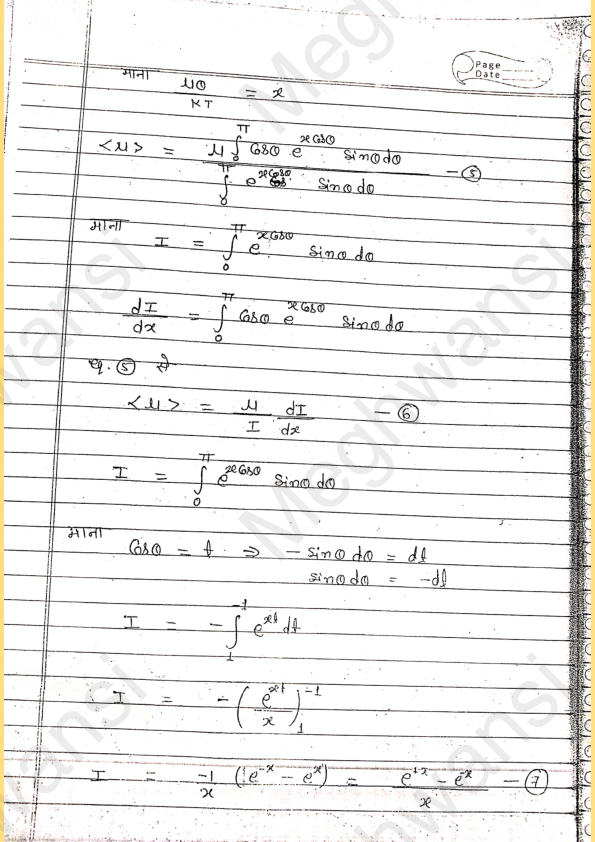 Page
Date
माना μθ/KT = x
<μ> = μ∫₀^π Cosθ e^{xCosθ} sinθdθ / ∫₀^π e^{xCosθ} sinθdθ — ⑤
माना I = ∫₀^π e^{xCosθ} sinθdθ
dI/dx = ∫₀^π Cosθ e^{xCosθ} sinθdθ
eq. ⑤ से
<μ> = μ/I dI/dx — ⑥
I = ∫₀^π e^{xCosθ} sinθdθ
माना
Cosθ = t ⇒ - sinθdθ = dt
sinθdθ = -dt
I = -∫₁^{-1} e^{xt} dt
I = -(e^{xt}/x)₁^{-1}
I = -1/x (e^{-x} - e^{x}) = e^{+x} - e^{-x} / x — ⑦
Meghwansi